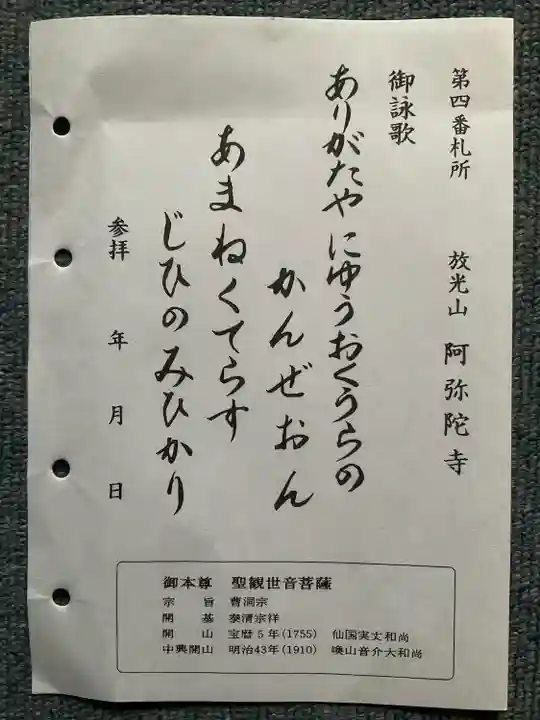 第四番札所　放光山　阿弥陀寺
御詠歌
ありがたやにゆうおくうらの
かんぜおん
あまねくてらす
じひのみひかり
参拝　年　月　日
御本尊　聖観世音菩薩
宗　旨　曹洞宗
開　基　泰清宗祥
開　山　宝暦５年(1755)　仙国実丈和尚
中興開山　明治43年(1910)　喚山音介大和尚